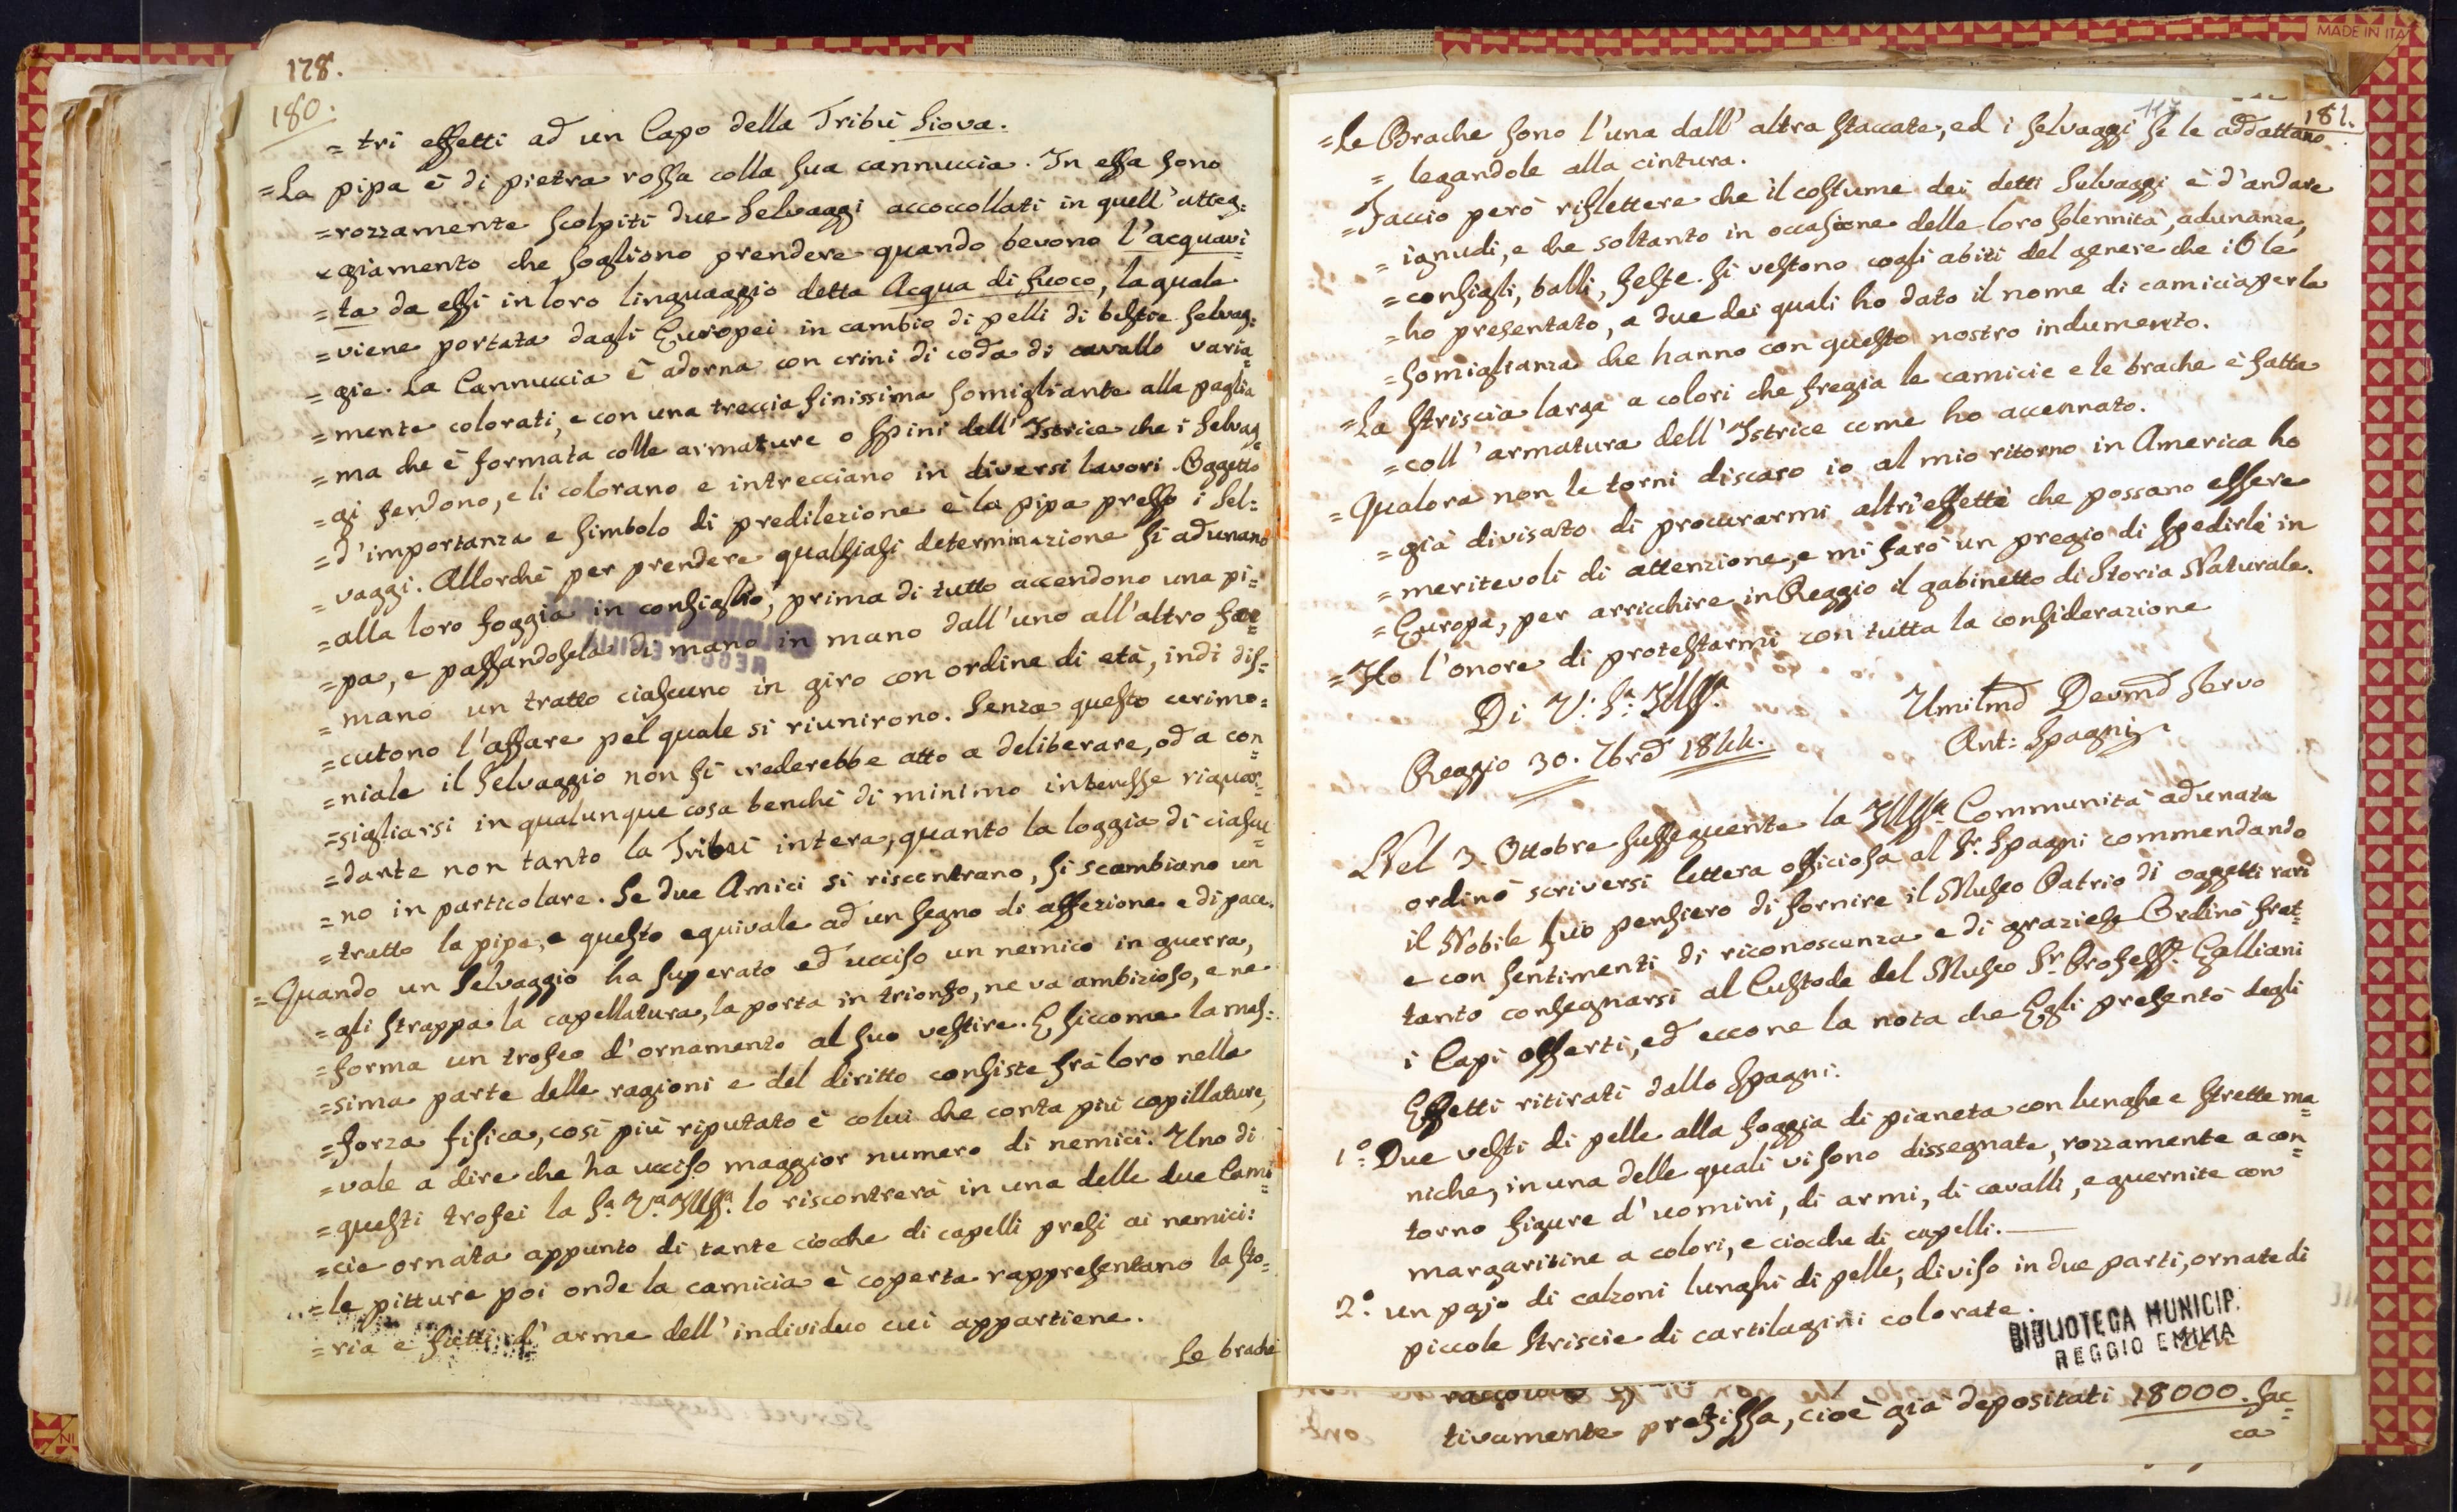 128.
180.
= tri effetti ad un Capo della Tribù Siova.
= La pipa è di pietra rossa colla sua cannuccia. In essa sono
= rozzamente scolpiti due Selvaggi accoccollati in quell' atteg:
= giamento che sogliono prendere quando bevono l'acquavi=
= ta da essi in loro linguaggio detta Acqua di fuoco, la quale
= viene portata dagli Europei in cambio di pelli di bestie selvag:
= gie. La Cannuccia è adorna con crini di coda di cavallo varia=
= mente colorati, e con una treccia finissima somigliante alla paglia
= ma che è formata colle armature o spini dell' Istrice che i selvag=
= gi fendono, e li colorano e intrecciano in diversi lavori. Oggetto
= d'importanza e simbolo di predilezione è la pipa presso i Sel=
= vaggi. Allorchè per prendere qualsiasi determinazione si adunano
= alla loro foggia in consiglio, prima di tutto accendono una pi=
= pa, e passandosela di mano in mano dall' uno all' altro fu=
= mano un tratto ciascuno in giro con ordine di età, indi dis=
= cutono l'affare pel quale si riunirono. Senza questo cerimo=
= niale il selvaggio non si crederebbe atto a deliberare, od a con=
= sigliarsi in qualunque cosa benchè di minimo interesse riguar=
= dante non tanto la Tribù intera, quanto la loggia di ciascu=
= no in particolare. Se due Amici si riscontrano, si scambiano un
= tratto la pipa, e questo equivale ad un segno di affezione e di pace.
= Quando un Selvaggio ha superato ed ucciso un nemico in guerra,
= gli strappa la capellatura, la porta in trionfo, ne va ambizioso, e ne
= forma un trofeo d'ornamento al suo vestire. E siccome la mas=
= sima parte delle ragioni e del diritto consiste frà loro nella
= forza fisica, così più riputato è colui che conta più capillature,
= vale a dire che ha ucciso maggior numero di nemici. Uno di
= questi trofei la Sª Vª Illssª lo riscontrerà in una delle due Cami=
= cie ornata appunto di tante ciocche di capelli presi ai nemici:
= le pitture poi onde la camicia è coperta rappresentano la sto=
= ria e fatti d' arme dell' individuo cui appartiene.
Le brache
117
181.
= Le Brache sono l'una dall' altra staccate, ed i selvaggi se le addattano
= legandole alla cintura.
= Faccio però riflettere che il costume dei detti Selvaggi è d'andare
= ignudi, e che soltanto in occasione delle loro solennità, adunanze,
= consigli, balli, feste si vestono cogli abiti del genere che io le
= ho presentato, a due dei quali ho dato il nome di camicia per la
= somiglianza che hanno con questo nostro indumento.
= La striscia larga a colori che fregia le camicie e le brache è fatta
= coll' armatura dell' Istrice come ho accennato.
= Qualora non le torni discaro io al mio ritorno in America ho
= già divisato di procurarmi altri effetti che possano essere
= meritevoli di attenzione, e mi farò un pregio di spedirli in
= Europa, per arricchire in Reggio il gabinetto di Storia Naturale.
= Ho l'onore di protestarmi con tutta la considerazione
Di V: Sª: Illssª.
Umilmo Devmo Servo
Reggio 30. 7bre 1844.
Ant: Spagni
Nel 3. Ottobre susseguente la Illssª Communità adunata
ordinò scriversi lettera officiosa al Sr. Spagni commendando
il Nobile suo pensiero di fornire il Museo Patrio di oggetti rari
e con sentimenti di riconoscenza e di grazie. Ordinò frat=
tanto consegnarsi al Custode del Museo Sr. Profess. Galliani
i Capi offerti, ed eccone la nota che Egli presentò degli
Effetti ritirati dallo Spagni.
1.º Due vesti di pelle alla foggia di pianeta con lunghe e strette ma=
niche, in una delle quali vi sono dissegnate, rozzamente a con=
torno figure d' uomini, di armi, di cavalli, e guernite con
margaritine a colori, e ciocche di capelli.
2.º un pajo di calzoni lunghi di pelle, diviso in due parti, ornate di
piccole striscie di cartilagini colorate.
BIBLIOTECA MUNICIP.
REGGIO EMILIA
tivamente prefissa, cioè già depositati 18000. fac=
ca
MADE IN ITA